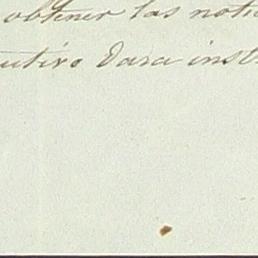 obtener las noti
utivo para inst